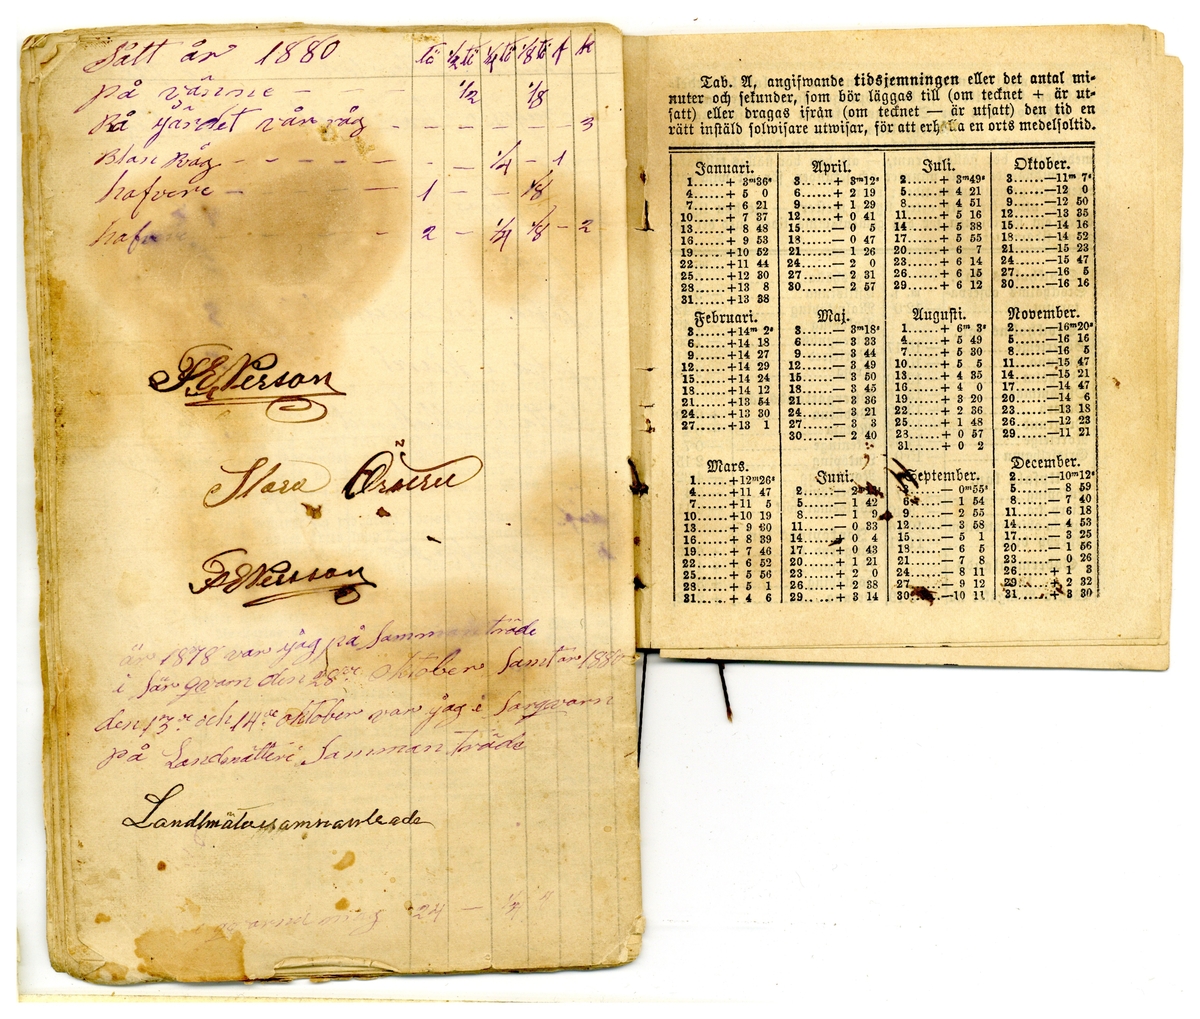 Sått år 1880 tö ½ tö ¼ tö ⅛ tö f k
på vänne – – ½ ⅛
På gärdet vår råg – – – – – – 3
Blan Råg – – – – – – ¼ – 1
hafvere – – – 1 – – ⅛
haf – – 2 – ¼ ⅛ – 2
P E Person
Stora
P E Persson
år 1878 var jag på Samman träde
i Särqvarn den 28de oktober Samt år 1880
den 13de och 14de oktober var jag i Sarqvarn
på Landmätteri Samman träde
Tab. A, angifwande tidsjemningen eller det antal mi-
nuter och sekunder, som bör läggas till (om tecknet + är ut-
satt) eller dragas ifrån (om tecknet — är utsatt) den tid en
rätt instäld solwisare utwisar, för att erhålla en orts medelsoltid.
Januari.
1......+ 3m36s
4......+ 5 0
7......+ 6 21
10......+ 7 37
13......+ 8 48
16......+ 9 53
19......+10 52
22......+11 44
25......+12 30
28......+13 8
31......+13 38
Februari.
3......+14m 2s
6......+14 18
9......+14 27
12......+14 29
15......+14 24
18......+14 12
21......+13 54
24......+13 30
27......+13 1
Mars.
1......+12m26s
4......+11 47
7......+11 5
10......+10 19
13......+ 9 30
16......+ 8 39
19......+ 7 46
22......+ 6 52
25......+ 5 56
28......+ 5 1
31......+ 4 6
April.
3......+ 3m12s
6......+ 2 19
9......+ 1 29
12......+ 0 41
15......— 0 5
18......— 0 47
21......— 1 26
24......— 2 0
27......— 2 31
30......— 2 57
Maj.
3......— 3m18s
6......— 3 33
9......— 3 44
12......— 3 49
15......— 3 50
18......— 3 45
21......— 3 36
24......— 3 21
27......— 3 3
30......— 2 40
Juni.
2......— 2
5......— 1 42
8......— 1 9
11......— 0 33
14......+ 0 4
17......+ 0 43
20......+ 1 21
23......+ 2 0
26......+ 2 38
29......+ 3 14
Juli.
2......+ 3m49s
5......+ 4 21
8......+ 4 51
11......+ 5 16
14......+ 5 38
17......+ 5 55
20......+ 6 7
23......+ 6 14
26......+ 6 15
29......+ 6 12
Augusti.
1......+ 6m 3s
4......+ 5 49
7......+ 5 30
10......+ 5 5
13......+ 4 35
16......+ 4 0
19......+ 3 20
22......+ 2 36
25......+ 1 48
28......+ 0 57
31......+ 0 2
September.
3......— 0m55s
6......— 1 54
9......— 2 55
12......— 3 58
15......— 5 1
18......— 6 5
21......— 7 8
24......— 8 11
27......— 9 12
30......—10 11
Oktober.
3......—11m 7s
6......—12 0
9......—12 50
12......—13 35
15......—14 16
18......—14 52
21......—15 23
24......—15 47
27......—16 5
30......—16 16
November.
2......—16m20s
5......—16 16
8......—16 5
11......—15 47
14......—15 21
17......—14 47
20......—14 6
23......—13 18
26......—12 23
29......—11 21
December.
2......—10m12s
5......— 8 59
8......— 7 40
11......— 6 18
14......— 4 53
17......— 3 25
20......— 1 56
23......— 0 26
26......+ 1 3
29......+ 2 32
31......+ 3 30